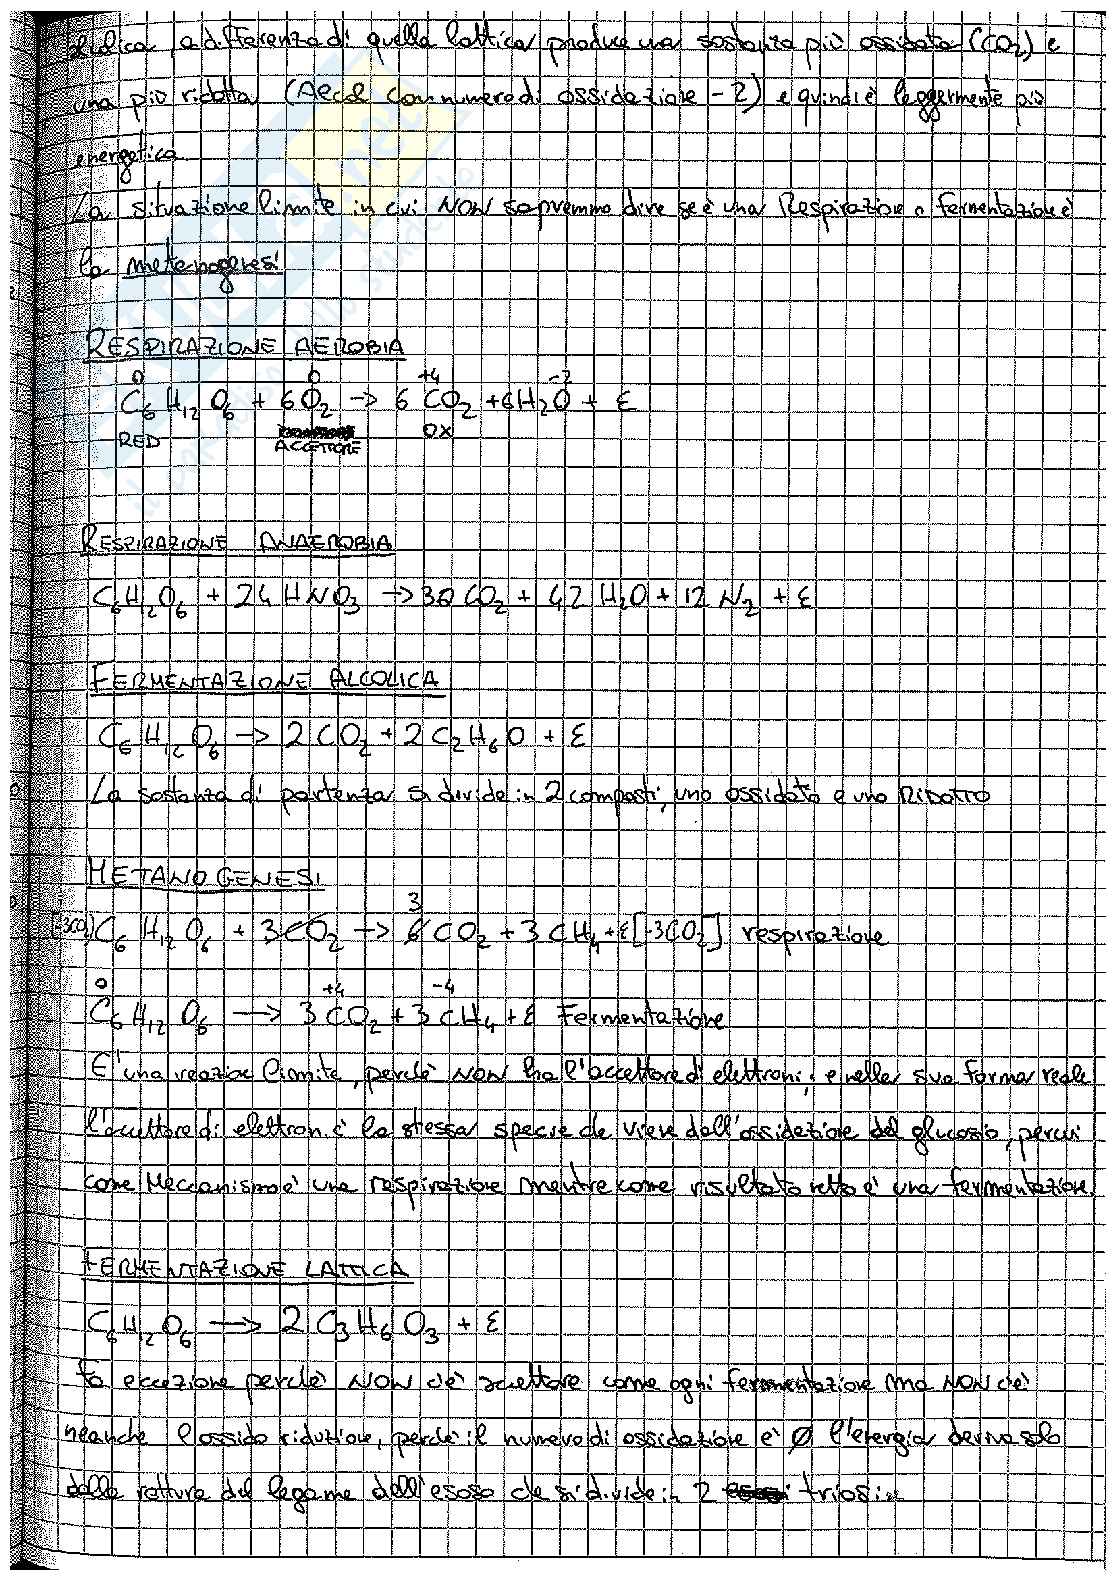 alcolica, a differenza di quella lattica produce una sostanza più ossidata (CO2) e
una più ridotta (Alcol con numero di ossidazione -2) e quindi è leggermente più
energetica.
La situazione limite in cui NON sapremmo dire se è una Respirazione o fermentazione è
la metanogenesi
RESPIRAZIONE AEROBIA
0 0 +4 -2
C6H12O6 + 6O2 → 6CO2 + 6H2O + ε
RED ACCETTORE OX
RESPIRAZIONE ANAEROBIA
C6H12O6 + 24HNO3 → 30CO2 + 42H2O + 12N2 + ε
FERMENTAZIONE ALCOLICA
C6H12O6 → 2CO2 + 2C2H6O + ε
La sostanza di partenza si divide in 2 composti, uno ossidato e uno RIDOTTO
METANOGENESI
3
[-3CO2] C6H12O6 + 3CO2 → 6CO2 + 3CH4 + ε [-3CO2] respirazione
0 +4 -4
C6H12O6 → 3CO2 + 3CH4 + ε Fermentazione
E' una reazione limite, perchè NON ha l'accettore di elettroni, e nella sua forma reale
l'accettore di elettroni è la stessa specie che viene dall'ossidazione del glucosio, percui
come Meccanismo è una respirazione mentre come risultato netto è una fermentazione.
FERMENTAZIONE LATTICA
C6H12O6 → 2C3H6O3 + ε
fa eccezione perchè NON c'è accettore come ogni fermentazione ma NON c'è
neanche l'ossido riduzione, perchè il numero di ossidazione è 0 l'energia deriva solo
dalla rottura del legame dell'esoso che si divide in 2 triosi